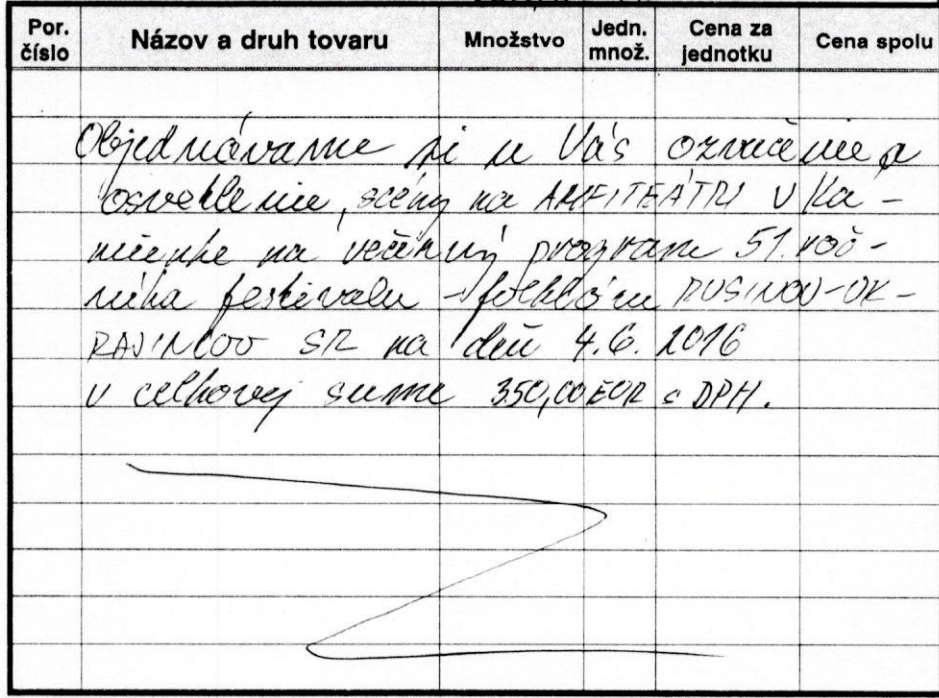 Por. číslo Názov a druh tovaru Množstvo Jedn. množ. Cena za jednotku Cena spolu
Objednávame si u Vás ozvučenie a
osvetlenie, scény na AMFITEÁTRI v Ka-
mienke na večerný program 51. roč-
níka festivalu - folklóru RUSÍNOV-UK-
RAJINCOV SR na deň 4.6. 2016
v celkovej sume 350,00 EUR s DPH.